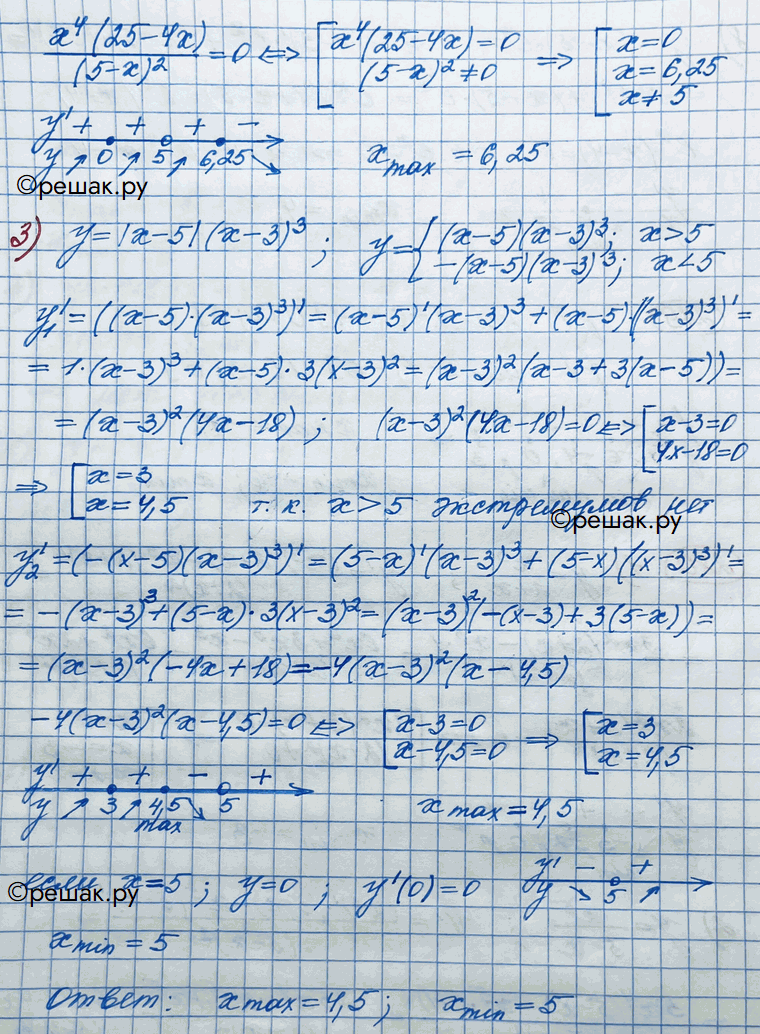 x⁴(25-4x)/(5-x)² = 0 <=> [x⁴(25-4x)=0 => [x=0
(5-x)²≠0 x=6,25
x≠5
y' + + + -
y ↗ 0 ↗ 5 ↗ 6,25 ↘ xmax = 6,25
©решак.ру
3) y=|x-5|(x-3)³; y={(x-5)(x-3)³; x>5
-(x-5)(x-3)³; x<5
y₁'=((x-5)·(x-3)³)'=(x-5)'(x-3)³+(x-5)·((x-3)³)'=
=1·(x-3)³+(x-5)·3(x-3)²=(x-3)²(x-3+3(x-5))=
=(x-3)²(4x-18); (x-3)²(4x-18)=0<=>[x-3=0
4x-18=0
=> [x=3
x=4,5 т.к. x>5 экстремумов нет
©решак.ру
y₂'=(-(x-5)(x-3)³)'=(5-x)'(x-3)³+(5-x)((x-3)³)'=
=-(x-3)³+(5-x)·3(x-3)²=(x-3)²(-(x-3)+3(5-x))=
=(x-3)²(-4x+18)=-4(x-3)²(x-4,5)
-4(x-3)²(x-4,5)=0<=> [x-3=0 => [x=3
x-4,5=0 x=4,5
y' + + - +
y ↗ 3 ↗ 4,5 ↘ 5 xmax=4,5
max
если x=5; y=0; y'(0)=0 y' - +
y ↘ 5 ↗
©решак.ру
xmin=5
Ответ: xmax=4,5; xmin=5